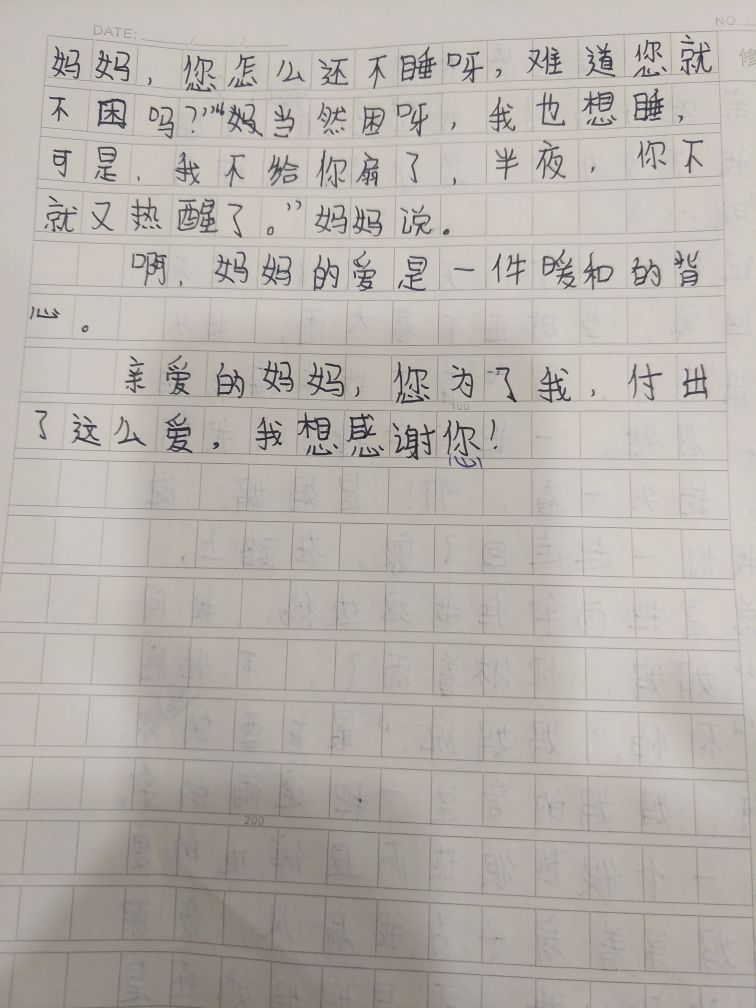 DATE: / /
NO
修
妈妈，您怎么还不睡呀，难道您就
不困吗？”“妈当然困呀，我也想睡，
可是，我不给你扇了，半夜，你不
就又热醒了。”妈妈说。
啊，妈妈的爱是一件暖和的背
心。
亲爱的妈妈，您为了我，付出
100
了这么爱，我想感谢您！
200